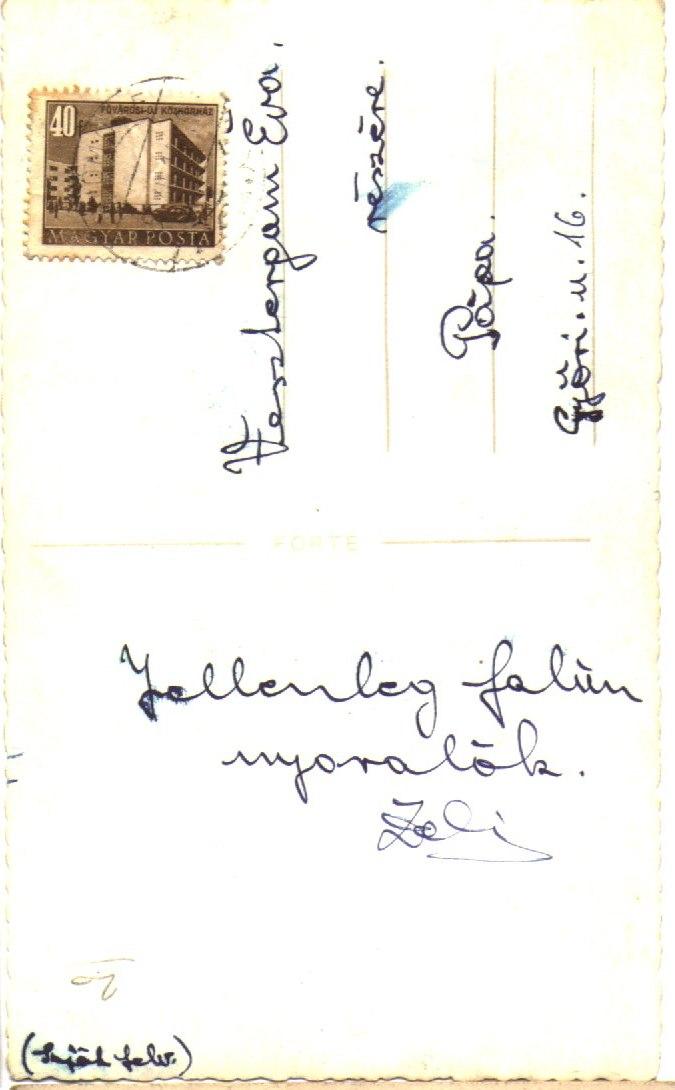 40
FŐVÁROSI ÚJ KÓRHÁZ
MAGYAR POSTA
Vesztergam Éva.
részére.
Pápa.
Győri.u.16.
FORTE
Jellenleg falun
nyaralók.
Zoli
(Saját felv.)